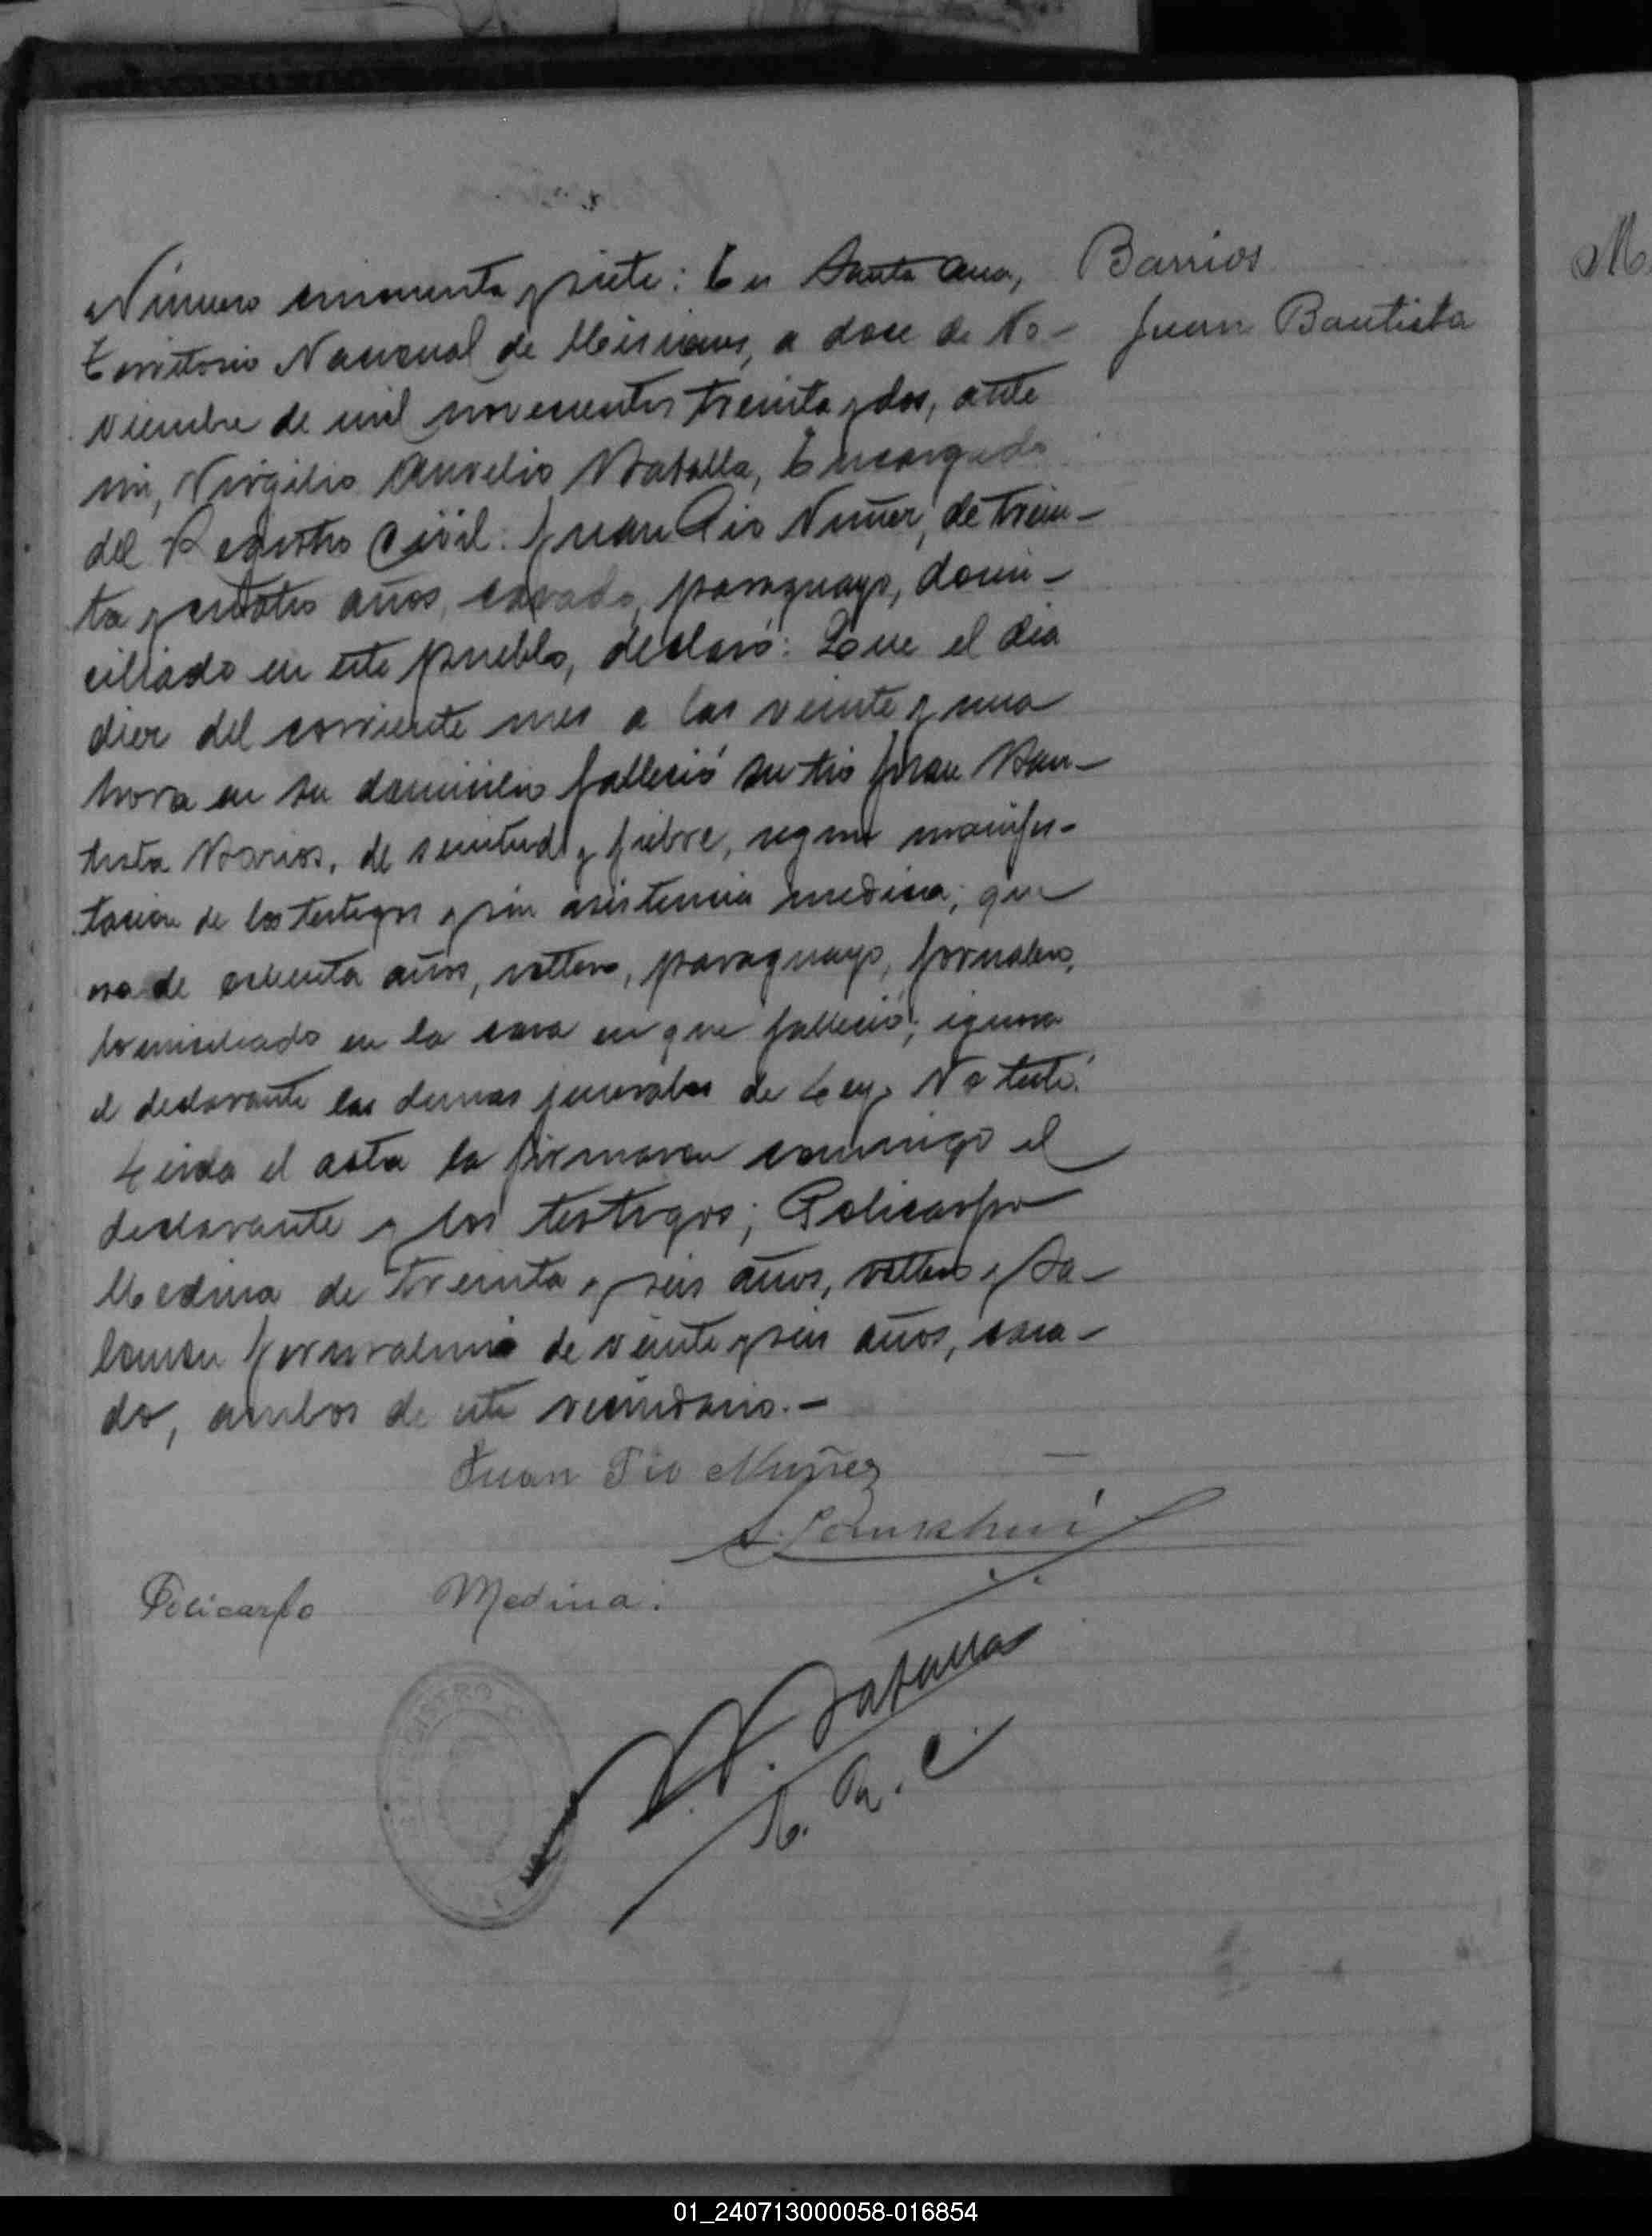 Barrios
Juan Bautista
Número cincuenta y siete: En Santa Ana,
Territorio Nacional de Misiones, a doce de No-
viembre de mil novecientos treinta y dos, ante
mi, Virgilio Aurelio Batalla, Encargado
del Registro Civil: Juan Pio Nuñez, de trein-
ta y cuatro años, casado, paraguayo, domi-
ciliado en este pueblo, declaró: Que el dia
diez del corriente mes a las veinte y una
hora en su domicilio falleció su tio Juan Bau-
tista Barrios, de senitud y fiebre, segun manifes-
tacion de los testigos y sin asistencia medica; que
era de ochenta años, soltero, paraguayo, jornalero,
domiciliado en la casa en que falleció; ignora
el declarante las demas generales de Ley. No testó.
Leida el acta la firmaron conmigo el
declarante y los testigos; Policarpo
Medina de treinta y seis años, soltero y Sa-
de veinte y seis años, casa-
do, ambos de este vecindario.-
Juan Pio Nuñez
Policarpo Medina.
V. Batalla
E. R. C.
REGISTRO
01_240713000058-016854